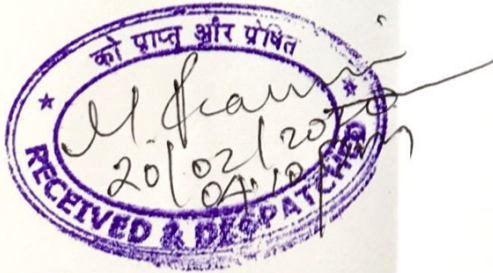 को प्राप्त और प्रेषित
M.
20/02/2020
04:10 pm
RECEIVED & DESPATCHED